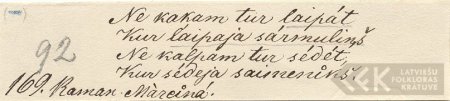 Ne kakam tur laipát
Kur laipaja sármulinš
Ne kalpam tur sédét,
Kur sédeja saimeniks.
92
169. Raman Màrcina.
LATVIEŠU
FOLKLORAS
KRĀTUVE